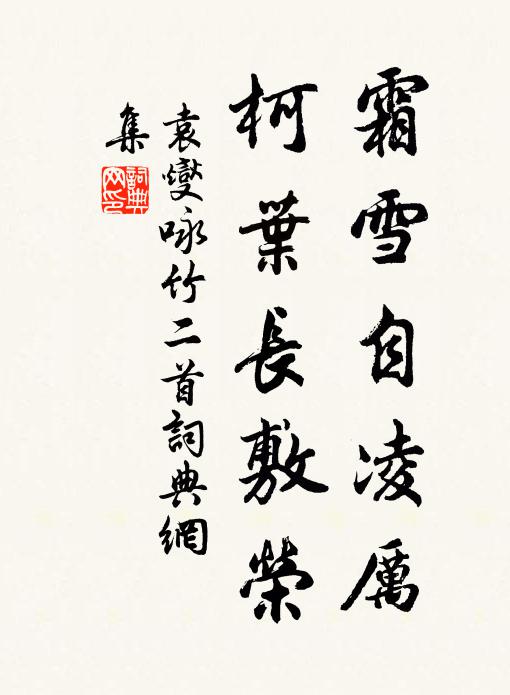 霜雪自凌厲
柯葉長敷榮
袁燮咏竹二首詞典網
集
詞典
网印